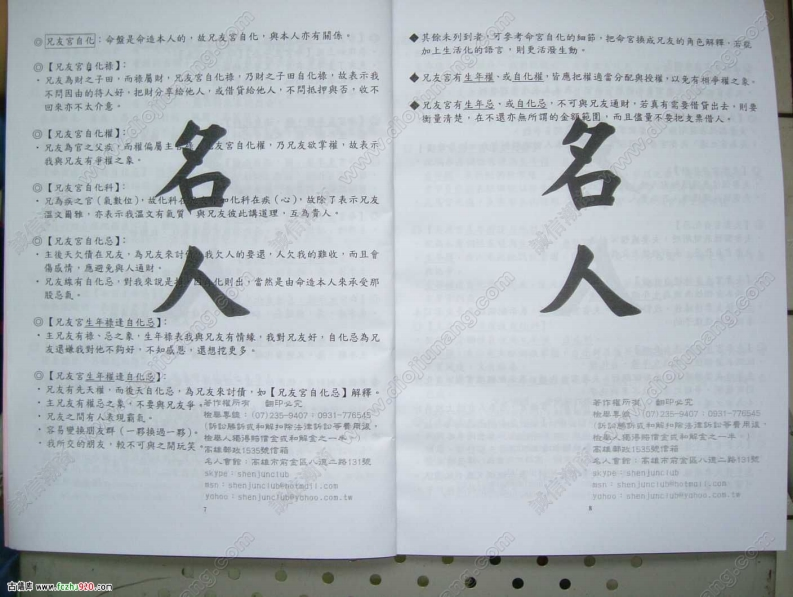 ◎兄友宮自化：命盤是命造本人的，故兄友宮自化，與本人亦有關係。
◎【兄友宮自化祿】：
・兄友為財之子田，而祿屬財，兄友宮自化祿，乃財之子田自化祿，故表示我
不問因由的待人好，把財分享給他人，或借貸給他人，不問抵押與否，收不
回來亦不太介意。
◎【兄友宮自化權】：
・兄友為官之父疾，而權偏屬主官 兄友宮自化權，乃兄友欲掌權，故表示
我與兄友有爭權之象。
◎【兄友宮自化科】：
・兄為疾之官（氣數位），故化科在 如化科在疾（心），故除了表示兄友
溫文爾雅，亦表示我溫文有氣質，與兄友彼此講道理，互為貴人。
◎【兄友宮自化忌】：
・主後天欠債在兄友，為兄友來討債， 我欠人的要還，人欠我的難收，而且會
傷感情，應避免與人通財。
・兄友線有自化忌，對我來說是 化則出，當然是由命造本人來承受那
股忌氣。
◎【兄友宮生年祿逢自化忌】：
・主兄友有祿、忌之象，生年祿表我與兄友有情緣，我對兄友好，自化忌為兄
友還嫌我對他不夠好，不知感恩，還想挖更多。
◎【兄友宮生年權逢自化忌】：
・兄友有先天權，而後天自化忌，為兄友來討債，如【兄友宮自化忌】解釋。
・主兄友有權忌之象，不要與兄友爭
・兄友之間有人表現霸氣。
・容易變換朋友群（一夥換過一夥）。
・我所交的朋友，較不可與之開玩笑
著作權所有 翻印必究
檢舉專線：(07)235-9407；0931-776545
（訴訟勝訴或和解扣除法律訴訟等費用後，
檢舉人獨得賠償金或和解金之一半。）
高雄郵政1535號信箱
名人會館：高雄市前金區八德二路131號
skype：shenjunclub
msn：shenjunclub@hotmail.com
yahoo：shenjunclub@yahoo.com.tw
名
人
7
◆其餘未列到者，可參考命宮自化的細節，把命宮換成兄友的角色解釋，若能
加上生活化的語言，則更活潑生動。
◆兄友宮有生年權、或自化權，皆應把權適當分配與授權，以免有相爭權之象。
◆兄友宮有生年忌、或自化忌，不可與兄友通財，若真有需要借貸出去，則要
衡量清楚，在不還亦無所謂的金額範圍，而且儘量不要把支票借人。
名
人
著作權所有 翻印必究
檢舉專線：(07)235-9407；0931-776545
（訴訟勝訴或和解扣除法律訴訟等費用後，
檢舉人獨得賠償金或和解金之一半。）
高雄郵政1535號信箱
名人會館：高雄市前金區八德二路131號
skype：shenjunclub
msn：shenjunclub@hotmail.com
yahoo：shenjunclub@yahoo.com.tw
8
古籍库 www.fczhu920.com